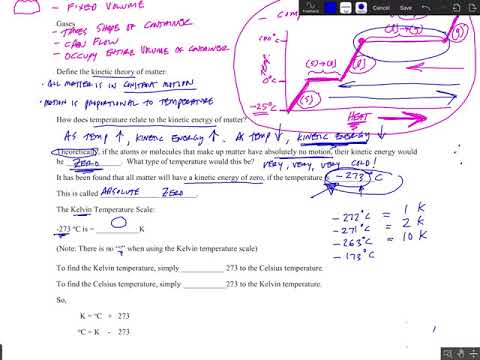 - FIXED VOLUME
Gases
- TAKES SHAPE OF CONTAINER
- CAN FLOW
- OCCUPY ENTIRE VOLUME OF CONTAINER
Define the kinetic theory of matter:
• ALL MATTER IS IN CONSTANT MOTION
• MOTION IS PROPORTIONAL TO TEMPERATURE
How does temperature relate to the kinetic energy of matter?
AS TEMP ↑, KINETIC ENERGY ↑. AS TEMP ↓, KINETIC ENERGY ↓
Theoretically, if the atoms or molecules that make up matter have absolutely no motion, their kinetic energy would
be ZERO. What type of temperature would this be? VERY, VERY, VERY COLD!
It has been found that all matter will have a kinetic energy of zero, if the temperature is -273 °C
This is called ABSOLUTE ZERO.
The Kelvin Temperature Scale:
-273 °C is = 0 K
(Note: There is no "°" when using the Kelvin temperature scale)
To find the Kelvin temperature, simply __________ 273 to the Celsius temperature.
To find the Celsius temperature, simply __________ 273 to the Kelvin temperature.
So,
K = °C + 273
°C = K - 273
Temp.
100°C
0°C
-25°C
(S)
(S)→(l)
(l)
(l)→(g)
(g)
HEAT
-272°C = 1 K
-271°C = 2 K
-263°C = 10 K
-173°C